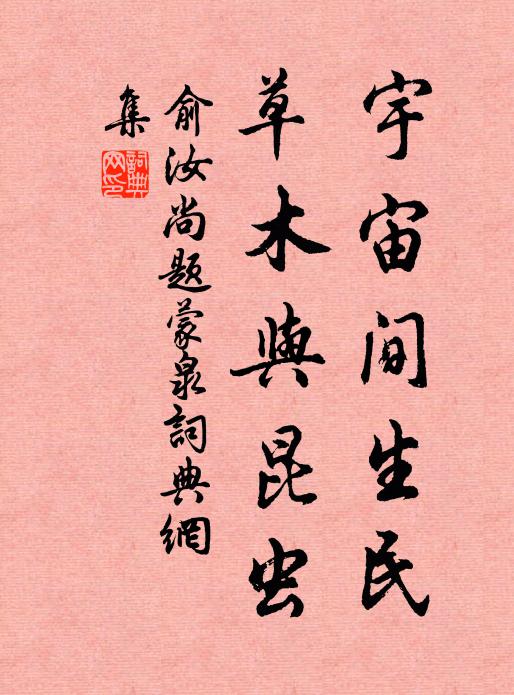 宇宙間生民
草木與昆虫
俞汝尚題蒙泉詞典網
集
詞典网印